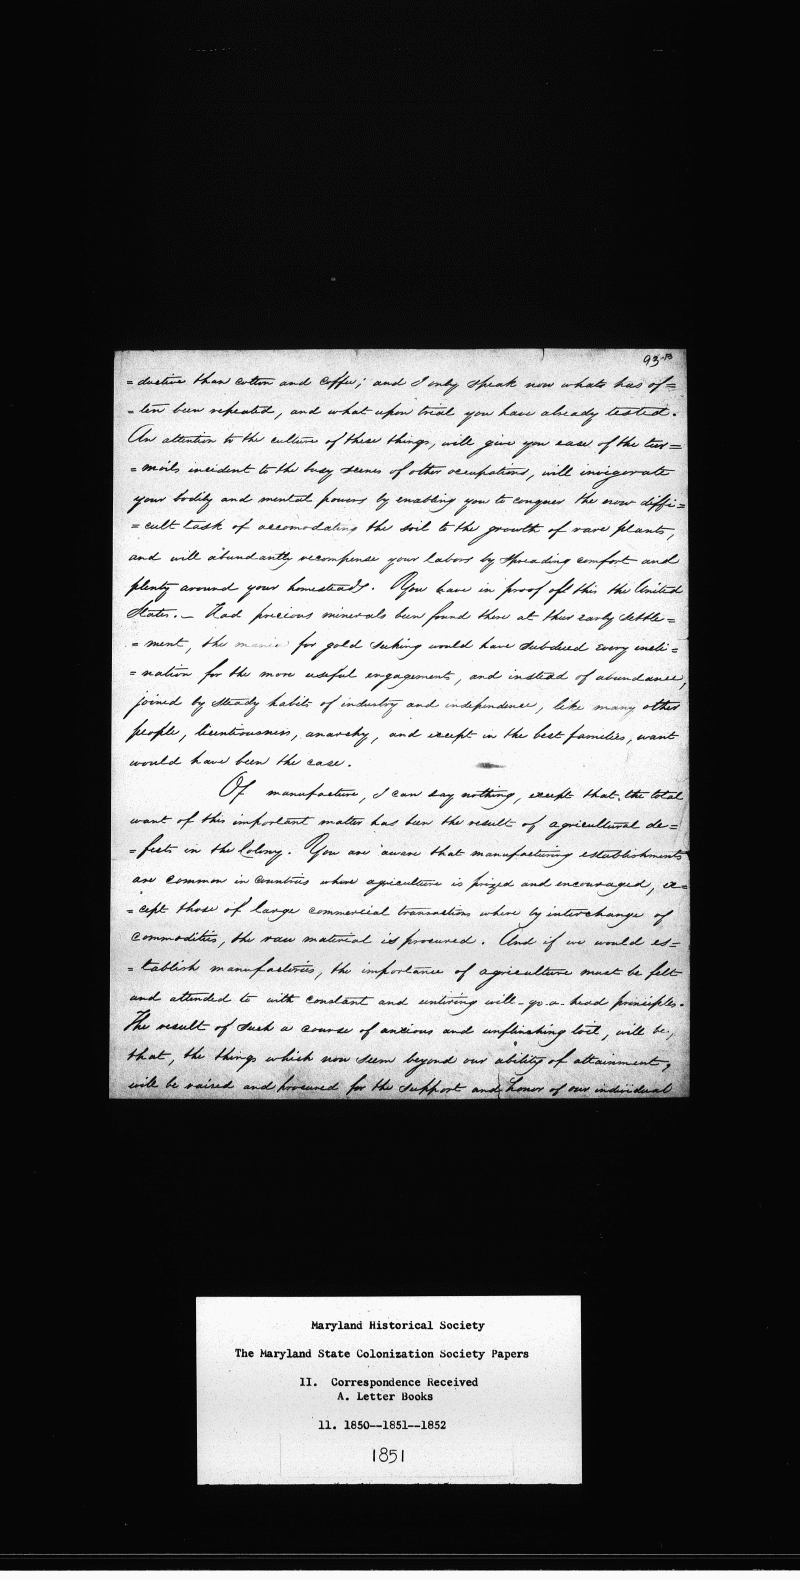 93-B
=ductive than cotton and coffee; and I only speak now whats has of=
=ten been repeated, and what upon trial you have already tested.
An attention to the culture of these things, will give you ease of the tur=
=moils incident to the busy scenes of other occupations, will invigorate
your bodily and mental powers by enabling you to conquer the now diffi=
=cult task of accomodating the soil to the growth of rare plants,
and will abundantly recompense your labors by spreading comfort and
plenty around your homesteads. You have in proof of this the United
States.— Had precious minerals been found there at their early settle=
=ment, the mania for gold seeking would have subdued every incli=
=nation for the more useful engagements, and instead of abundance,
joined by steady habits of industry and independence, like many other
people, licentiousness, anarchy, and except in the best families, want
would have been the case.
Of manufacture, I can say nothing, except that the total
want of this important matter has been the result of agricultural de=
=fects in the Colony. You are aware that manufacturing establishments
are common in countries where agriculture is prized and encouraged, ex=
=cept those of large commercial transactions where by interchange of
commodities, the raw material is procured. And if we would es=
=tablish manufactories, the importance of agriculture must be felt
and attended to with constant and untiring will-go-a-head principles.
The result of such a course of anxious and unflinching toil, will be,
that, the things which now seem beyond our ability of attainment,
will be raised and procured for the support and honor of our individual
Maryland Historical Society
The Maryland State Colonization Society Papers
11. Correspondence Received
A. Letter Books
11. 1850--1851--1852
1851